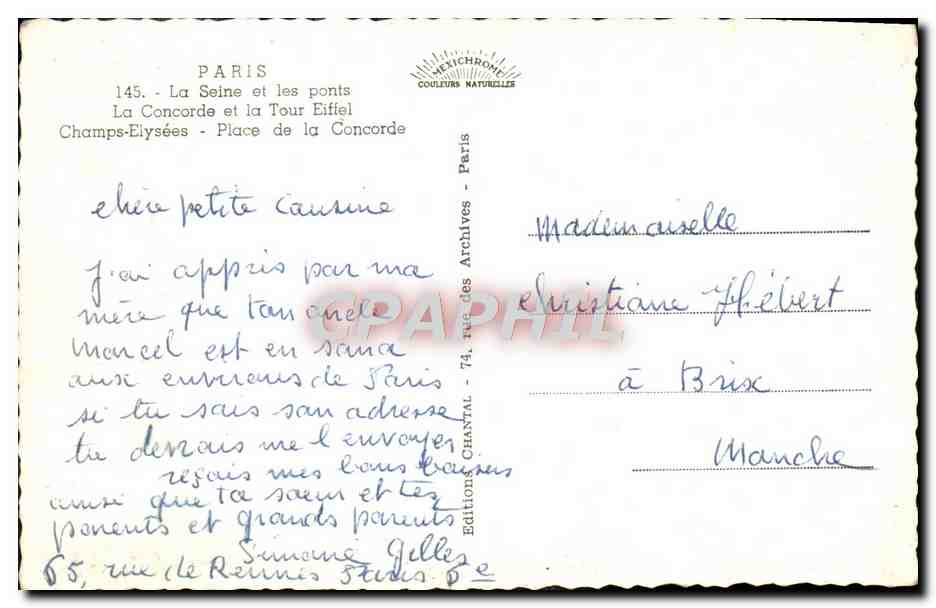 PARIS
145. - La Seine et les ponts
La Concorde et la Tour Eiffel
Champs-Elysées - Place de la Concorde
MEXICHROME
COULEURS NATURELLES
chère petite cousine
J'ai appris par ma
mère que ton oncle
Marcel est en sana
aux environs de Paris
si tu sais son adresse
tu devrais me l'envoyer
reçois mes bons baisers
ainsi que ta sœur et tes
parents et grands parents
Simone Gilles
65, rue de Rennes Paris 6e
Editions CHANTAL - 74, rue des Archives - Paris
Mademoiselle
Christiane Hébert
à Brix
Manche
CPAPHIL